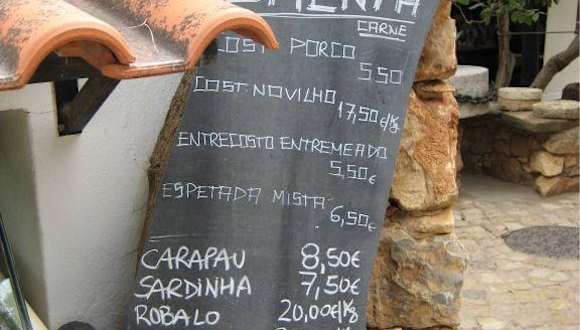 CARNE
COST PORCO
5.50
COST. NOVILHO
17,50€/Kg
ENTRECOSTO ENTREMEADO
5,50€
ESPETADA MISTA
6,50€
CARAPAU 8,50€
SARDINHA 7,50€
ROBALO 20,00€/Kg